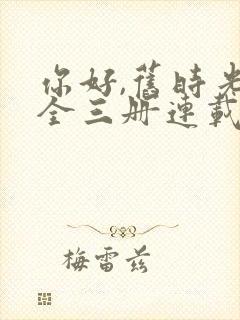 你好,舊時光
全三册連載
梅雷茲